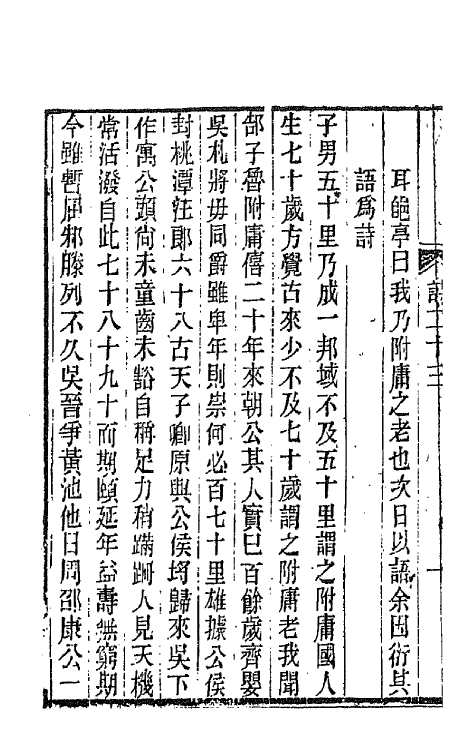 詩二十三
耳郎亭曰我乃附庸之老也次日以語余因衍其
語爲詩
子男五十里乃成一邦域不及五十里謂之附庸國人
生七十歲方覺古來少不及七十歲謂之附庸老我聞
郜子魯附庸僖二十年來朝公其人實已百餘歲齊嬰
吳札將毋同爵雖卑年則崇何必百七十里雄據公侯
封桃潭汪郎六十八古天子卿原與公侯埒歸來吳下
作寓公頭尙未童齒未豁自稱足力稍蹣跚人見天機
常活潑自此七十八十九十而期頤延年益壽無窮期
今雖暫屈邾滕列不久吳晉爭黃池他日周邵康公一